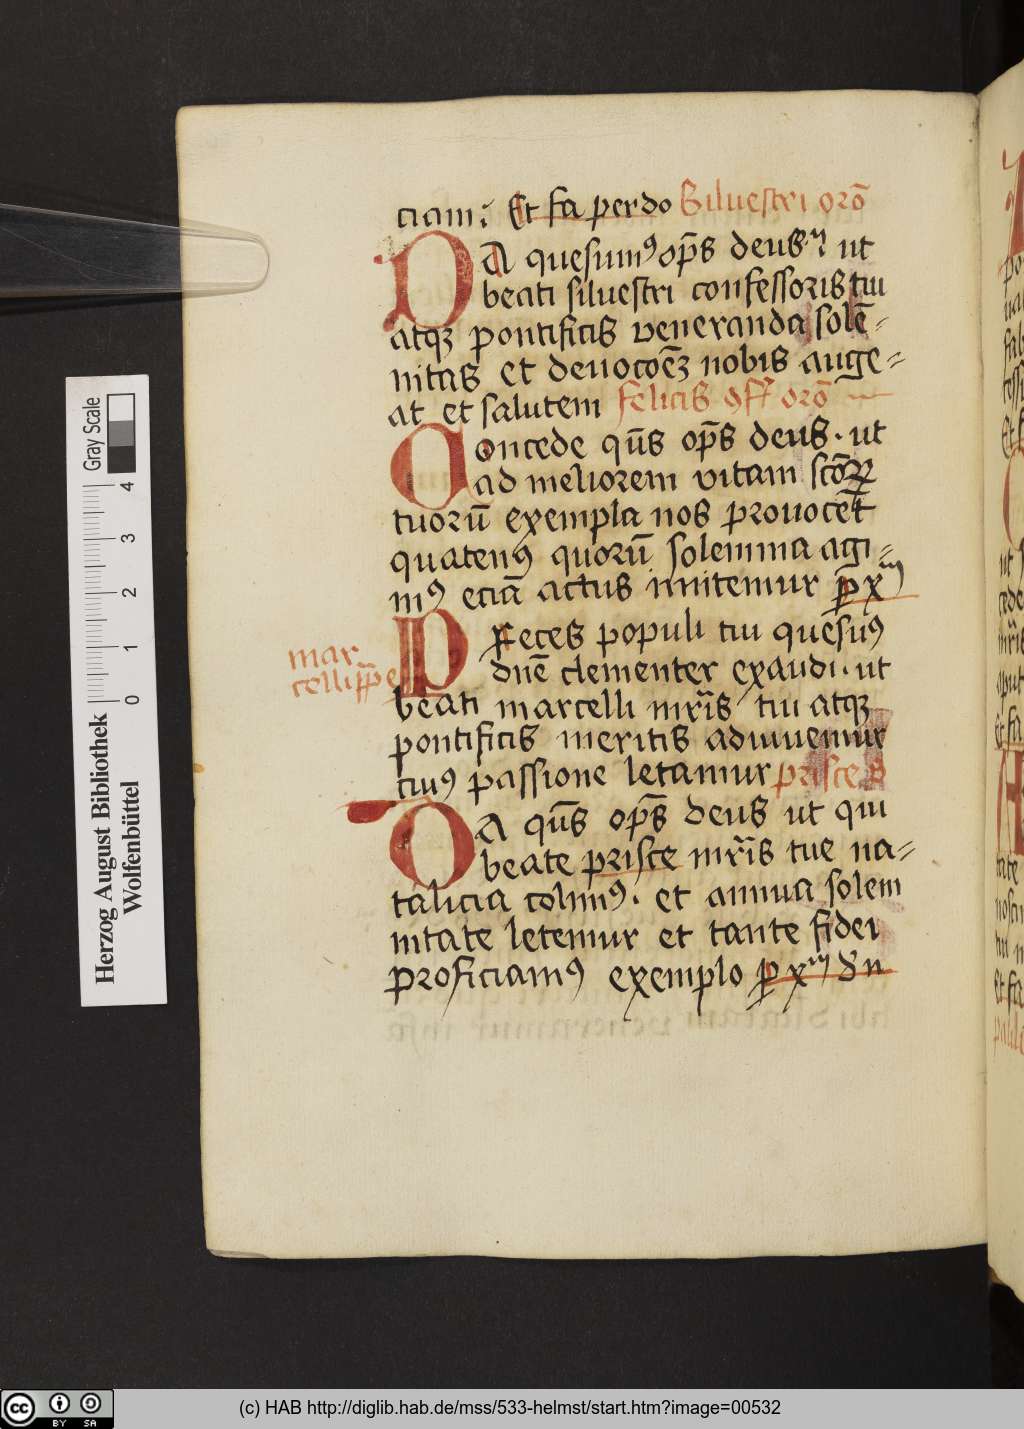 ciam. Et fa perdo Siluestri orō
DA quesumꝰ opp̄s deus ut
beati siluestri confessoris tui
atqꝫ pontificis veneranda solē⸗
nitas et deuocōeꝫ nobis auge⸗
at et salutem felicis ꝯf orō
Concede qūs opp̄s deus. ut
ad meliorem vitam scōꝝ
tuorū exempla nos prouocēt
quatenꝰ quorū solemnia agi⸗
mꝰ eciā actus imitemur ꝑ xm
Preces populi tui quesūꝰ
dn̄e clementer exaudi. ut
mar
celli pp̄e
beati marcelli mr̄is tui atqꝫ
pontificis meritis adiuuemur
cuiꝰ passione letamur prisce
DA qūs opp̄s deus ut qui
beate prisce mr̄is tue na⸗
talicia colimꝰ. et annua solem
nitate letemur et tante fidei
proficiamꝰ exemplo ꝑ xm dn
Herzog August Bibliothek
Wolfenbüttel
0 1 2 3 4
Gray Scale
cc BY SA
(c) HAB http://diglib.hab.de/mss/533-helmst/start.htm?image=00532